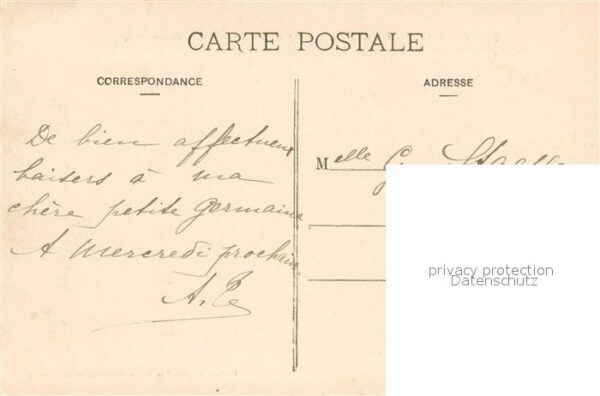 CARTE POSTALE
CORRESPONDANCE
ADRESSE
De bien affectueux
baisers à ma
chère petite Germaine
A Mercredi prochain
Melle G.
privacy protection
Datenschutz